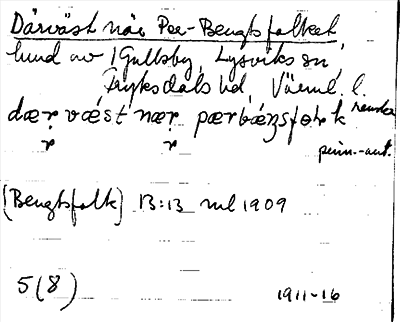 Därväst när Per-Bengtsfolket
lund av i Gullsby, Lysviks sn,
Fryksdals hd, Värml. l.
dær væst nær pærbæŋsfoḷk
r r
penn.-ant.
[Bengtsfolk] 13:13 ml 1909
5(8) 1911-16